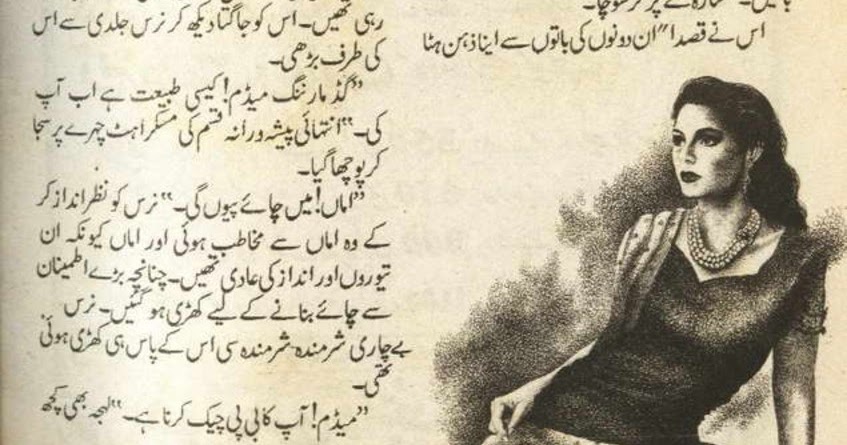 اس نے قصدا" ان دونوں کی باتوں سے اپنا ذہن ہٹا
رہی تھیں۔ اس کو جاگتا دیکھ کر نرس جلدی سے اس
کی طرف بڑھی۔
"گڈ مارننگ میڈم! کیسی طبیعت ہے اب آپ
کی۔" انتہائی پیشہ ورانہ قسم کی مسکراہٹ چہرے پر سجا
کر پوچھا گیا۔
"اماں! میں چائے پیوں گی۔" نرس کو نظر انداز کر
کے وہ اماں سے مخاطب ہوئی اور اماں کیونکہ ان
تیوروں اور انداز کی عادی تھیں۔ چنانچہ بڑے اطمینان
سے چائے بنانے کے لیے کھڑی ہو گئیں۔ نرس
بے چاری شرمندہ۔ شرمندہ سی اس کے پاس ہی کھڑی ہوئی
تھی۔
"میڈم! آپ کا بی پی چیک کرنا ہے۔" لہجہ بھی کچھ